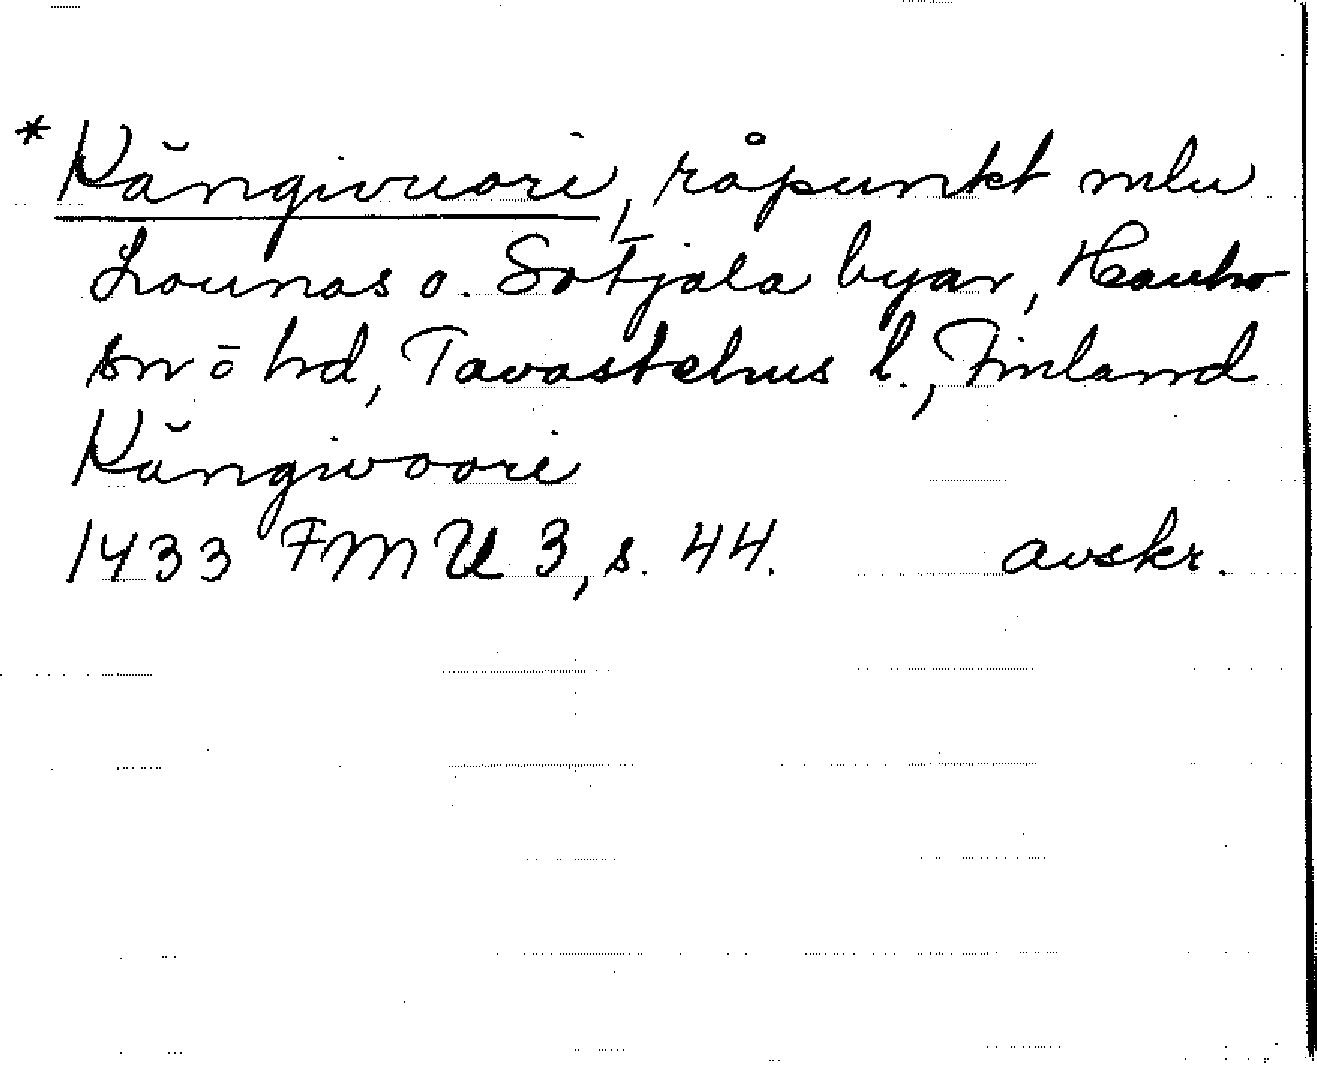 * Kängivuori, råpunkt mlu
Lounas o. Sotjala byar, Hauho
sn o hd, Tavastehus l., Finland
Kängivoori
1433 FMU 3, s. 44. avskr.